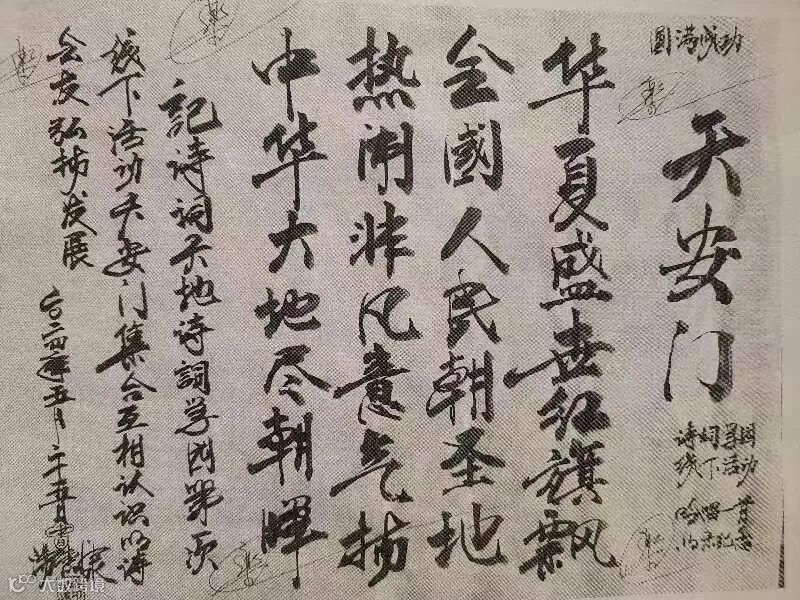 圆满成功
天安门
诗词学园
线下活动
吟唱一首
以示纪念
华夏盛世红旗飘
全國人民朝圣地
热闹非凡意气扬
中华大地尽朝晖
記诗词天地诗詞学园第次
线下活动天安门集合互相认识以诗
会友弘扬发展
二〇二四年五月二十五日
大数跨境